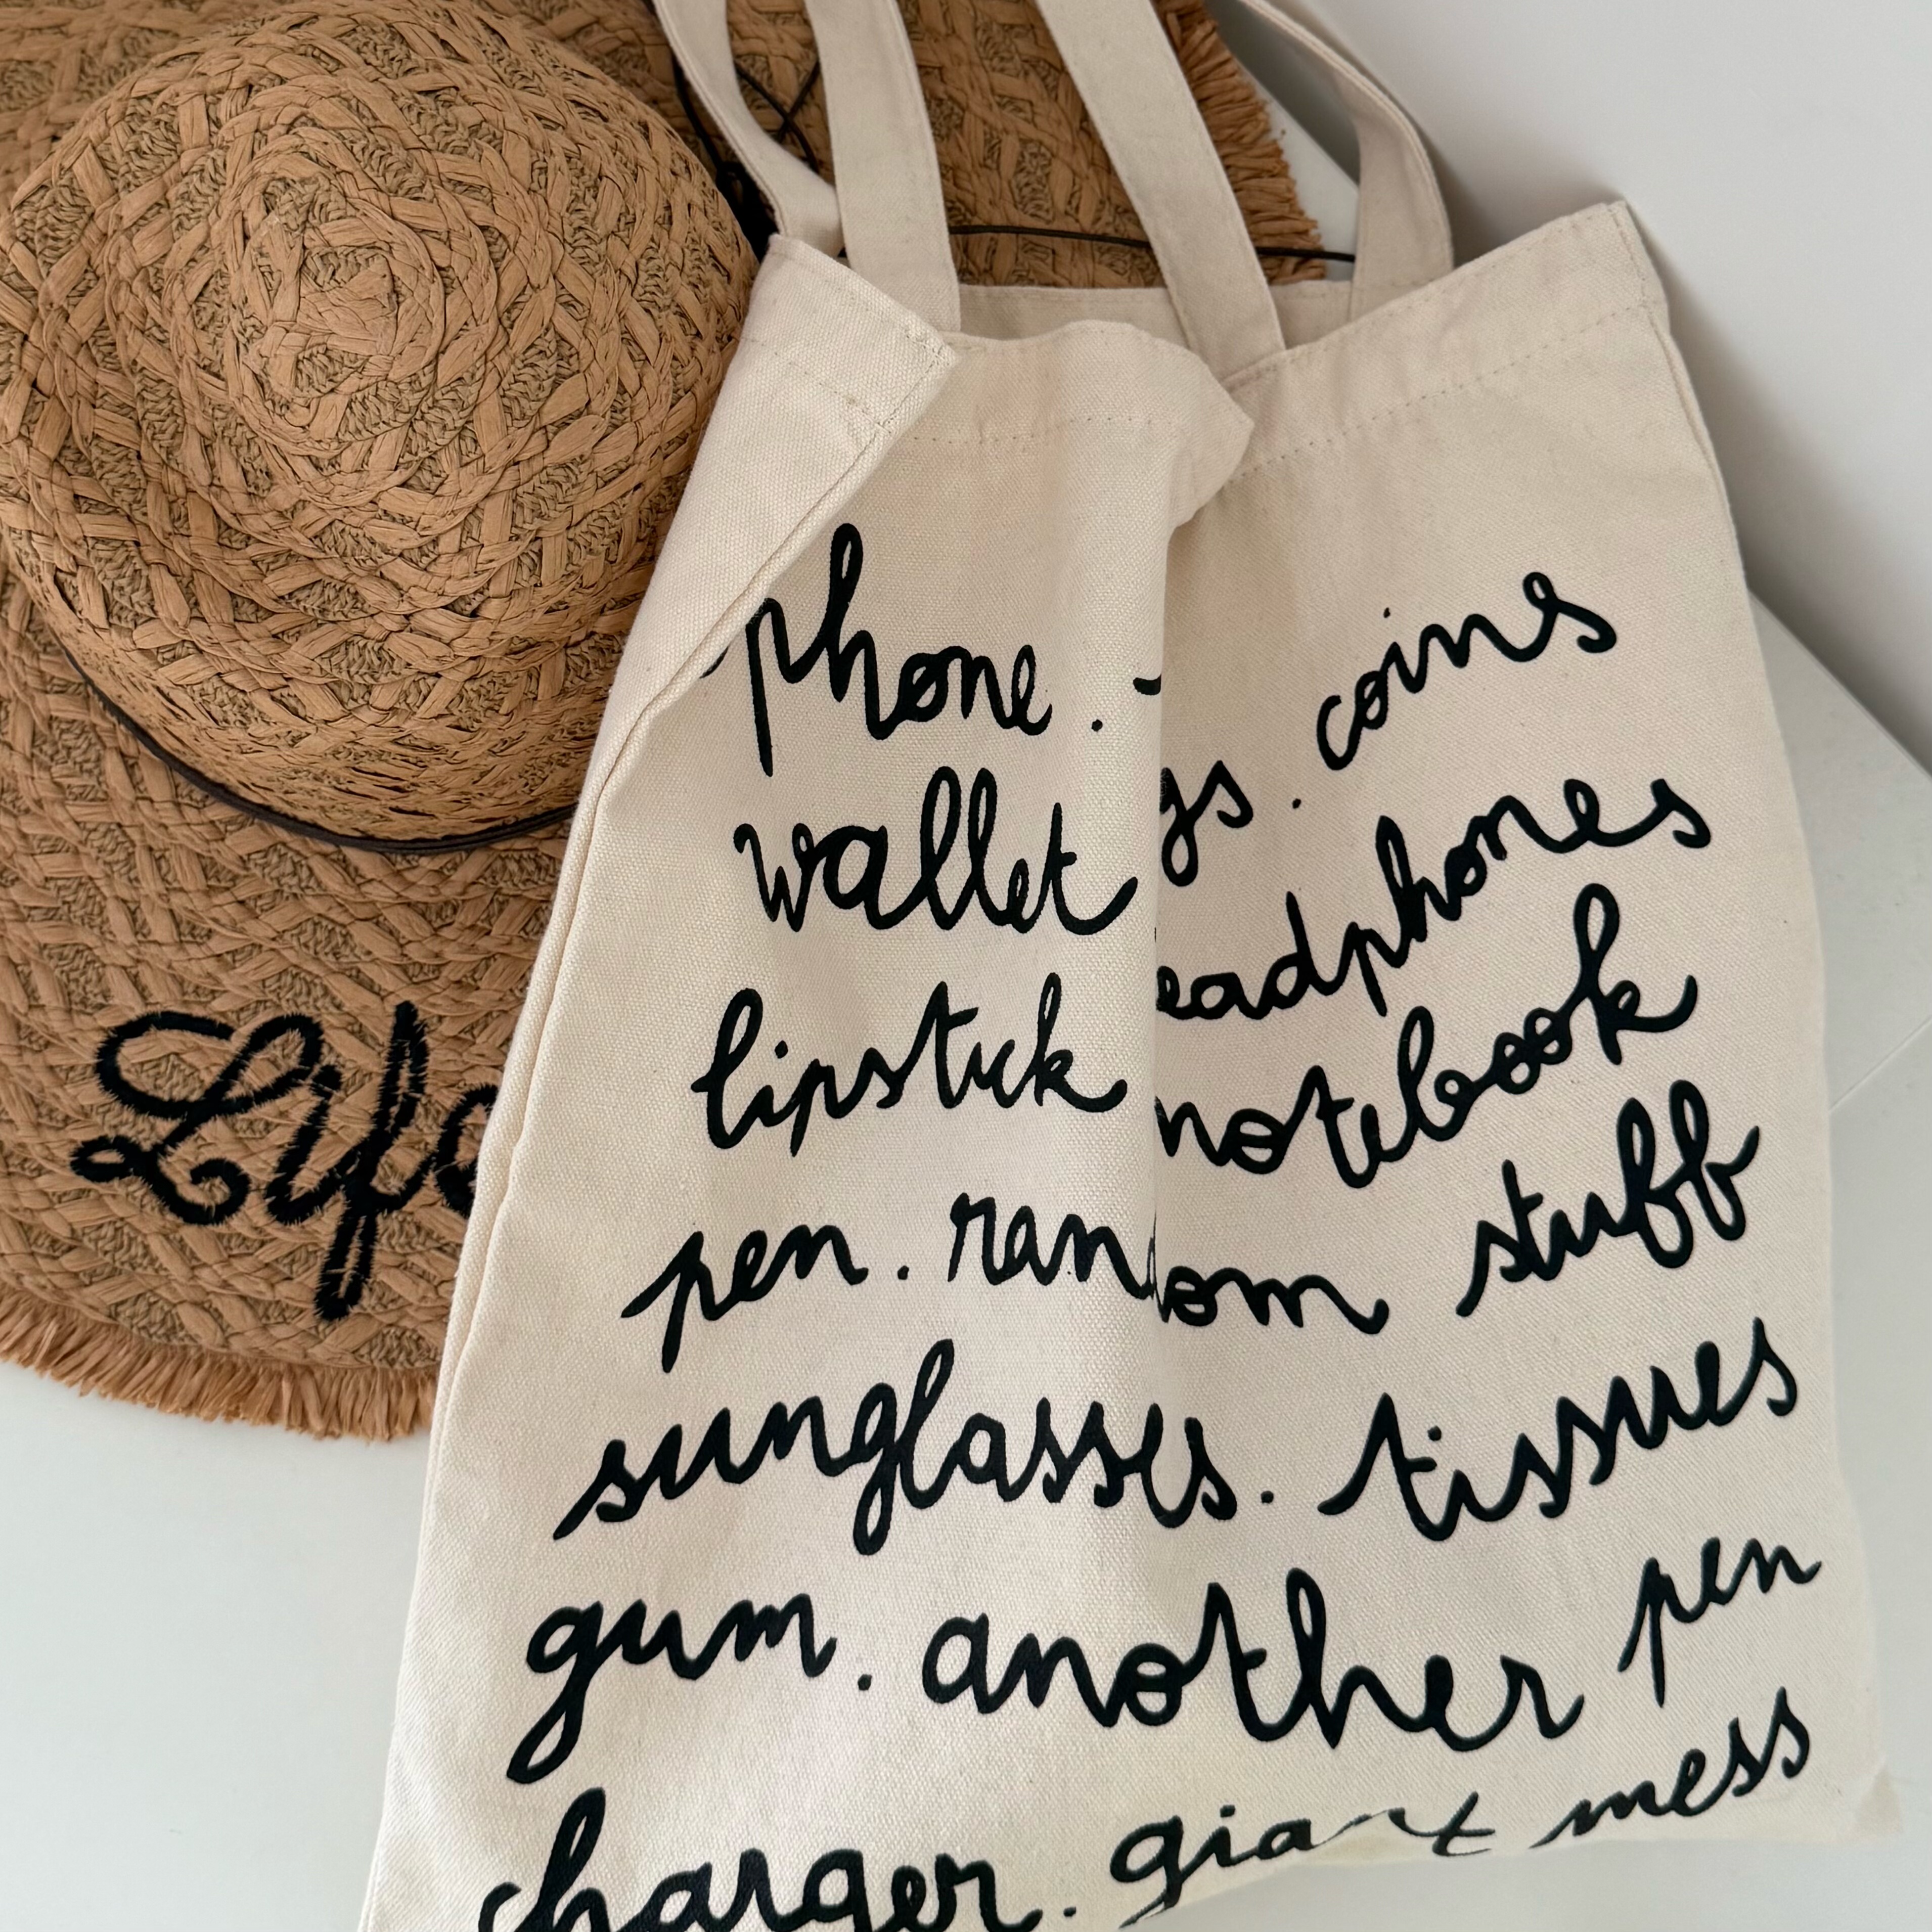 Life
phone . coins
wallet
headphones
lipstick notebook
pen . random stuff
sunglasses . tissues
gum . another pen
charger . giant mess